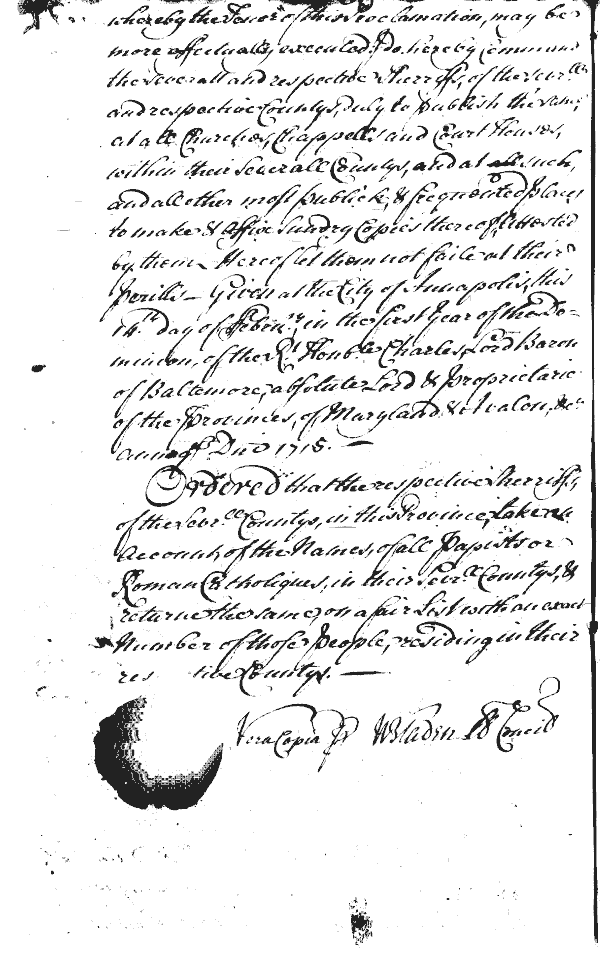 whereby the Tenor of this Proclamation, may be
more effectually executed, I do hereby Command
the severall and respective Sherriffs, of the sev.ll
and respective Countys, duly to publish the same,
at all Churches, Chappells and Court Houses,
within their Severall Countys, and at all such,
and all other most publick, & frequented places
to make & Affix Sundry Copies thereof, Attested
by them. Hereof let them not faile at their
Perills — Given at the City of Annapolis, this
14.th day of Febru.ry, in the first Year of the Do-
minion, of the R.t Hon.ble Charles, Lord Baron
of Baltemore, absolute Lord & Proprietarie
of the Provinces, of Maryland & Avalon, &c.
Annoq. Dno 1715. —
Ordered that the respective Sherriffs,
of the Sev.ll Countys, in this Province, take an
Account, of the Names, of all Papists or
Roman Catholiques, in their Sev.ll Countys, &
returne the same, on a fair List with an exact
Number of those People, residing in their
res tive Countys. —
Vera Copia P W Bladen Cl Concil